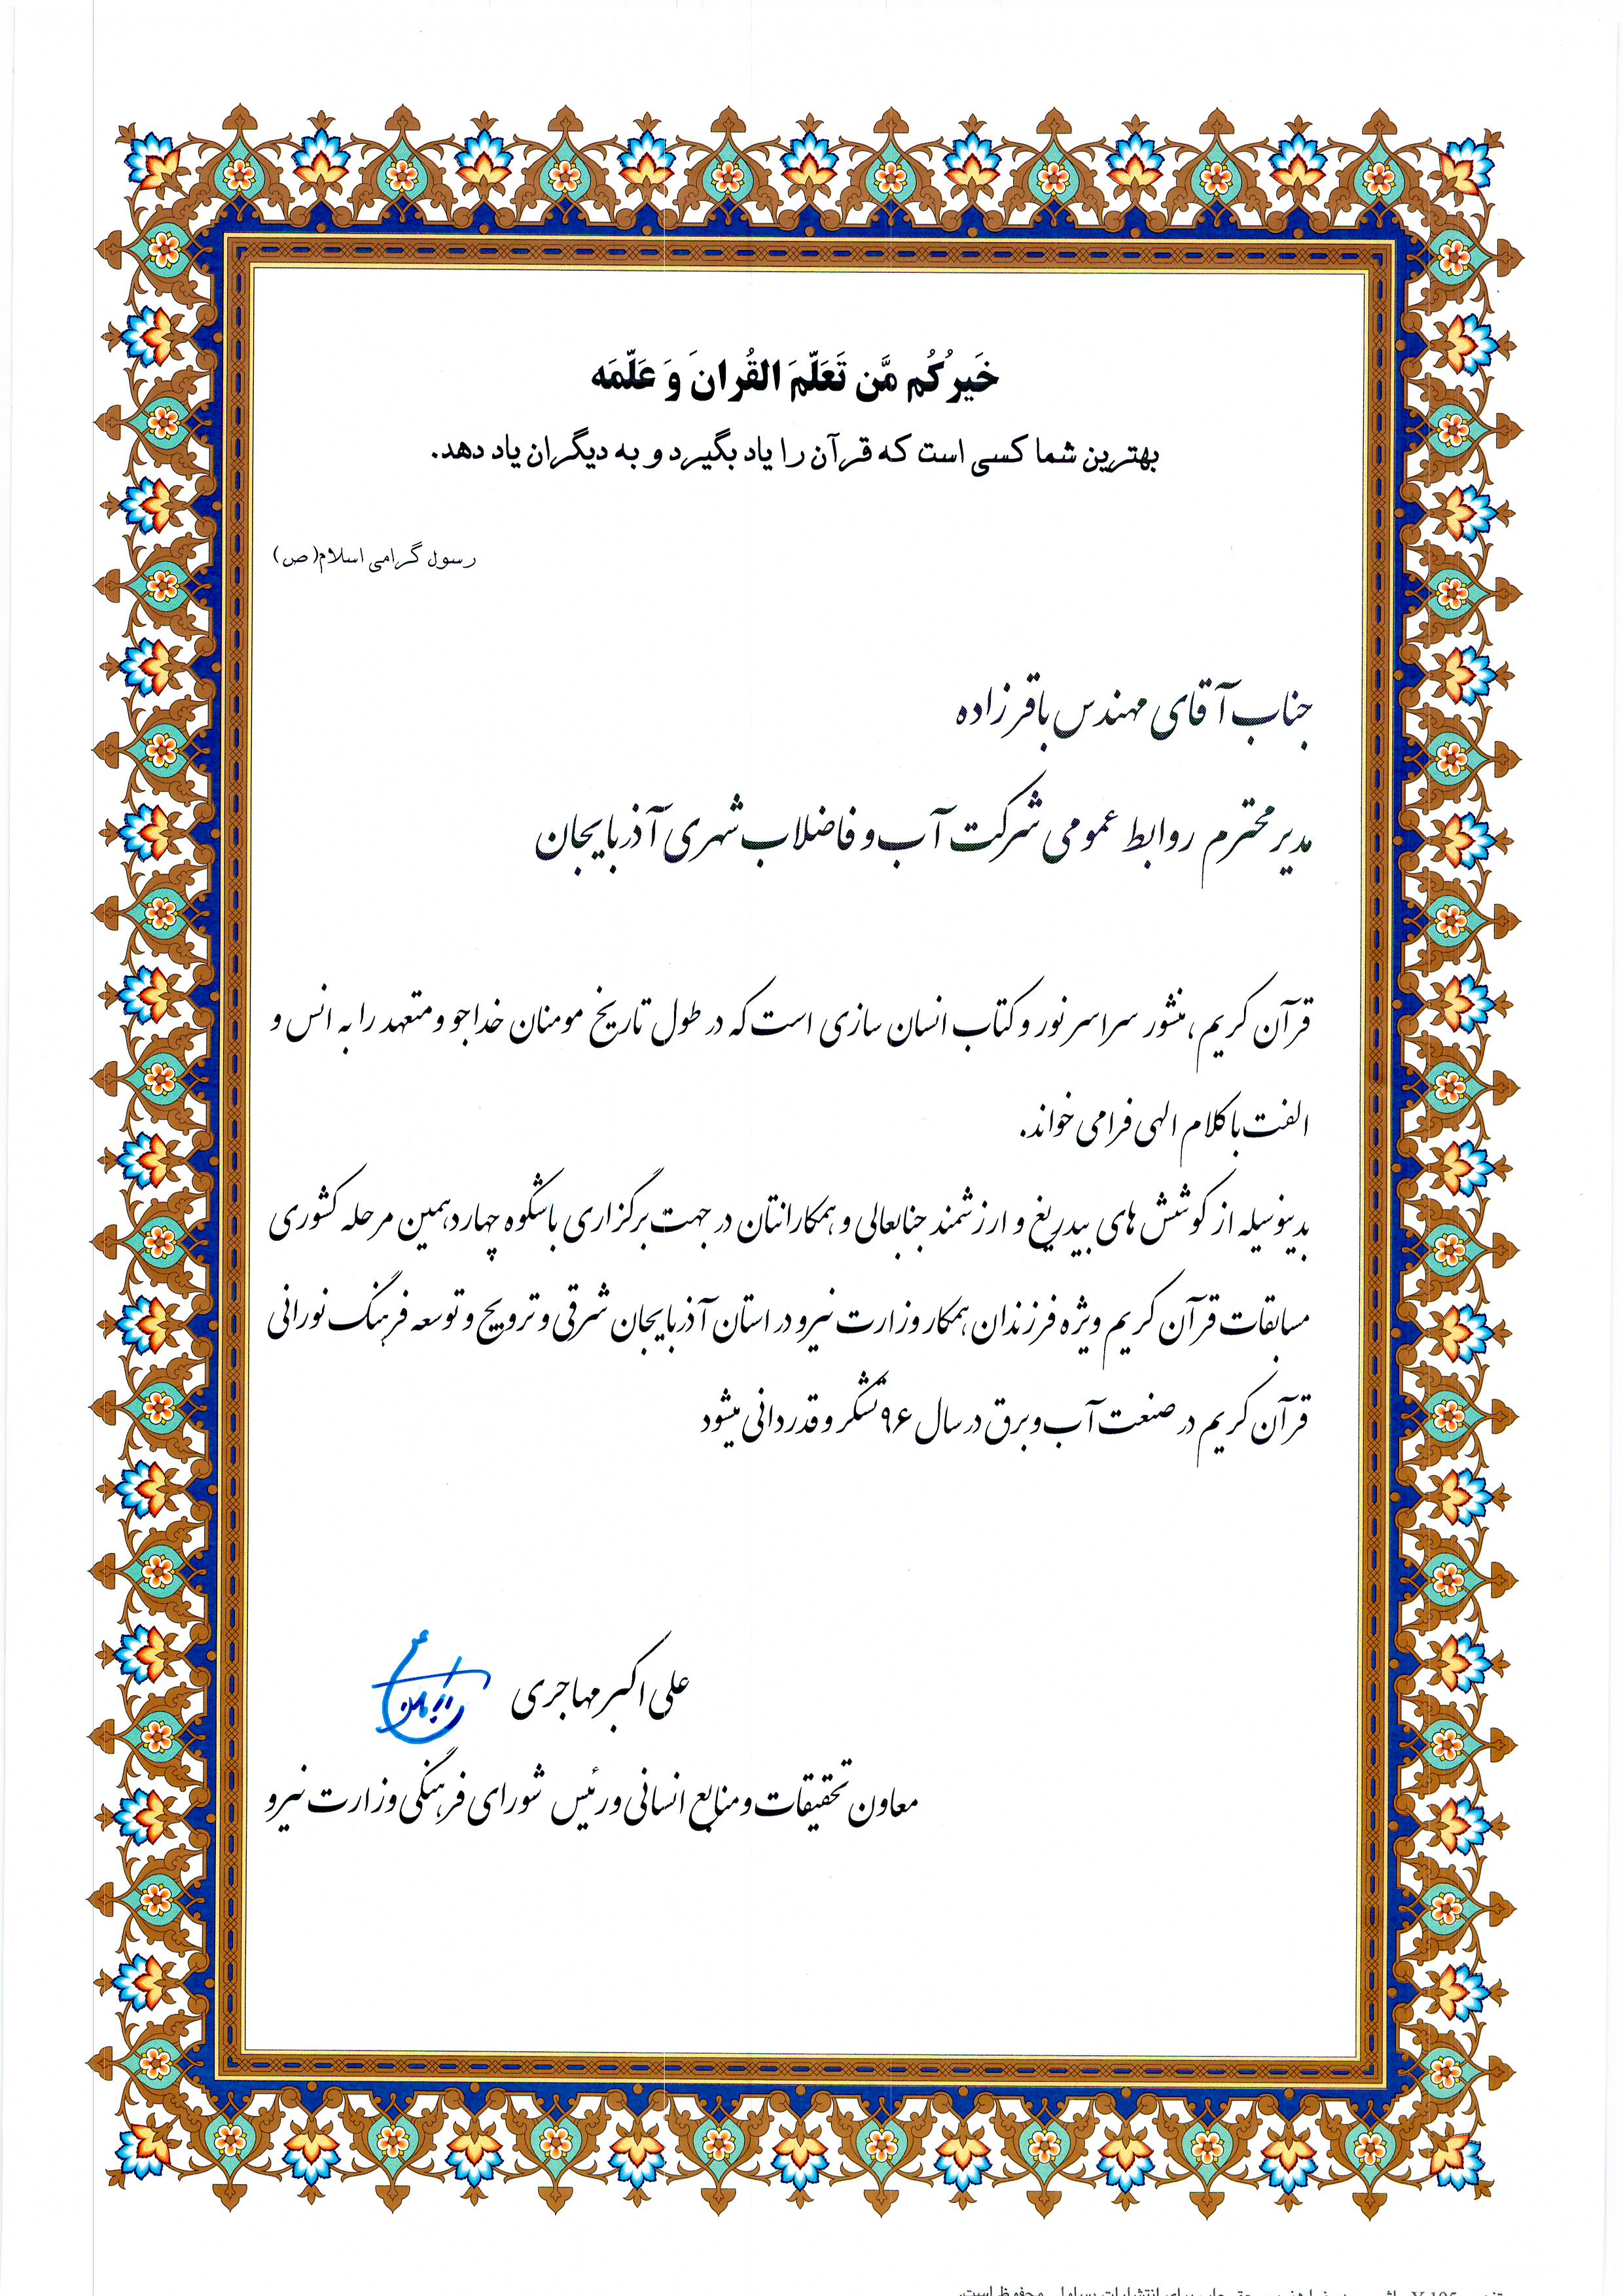 خَیرُکُم مَّن تَعَلّمَ القُرانَ وَ عَلّمَه
بهترین شما کسی است که قرآن را یاد بگیرد و به دیگران یاد دهد.
رسول گرامی اسلام(ص)
جناب آقای مهندس باقرزاده
مدیر محترم روابط عمومی شرکت آب و فاضلاب شهری آذربایجان
قرآن کریم، منشور سراسر نور و کتاب انسان سازی است که در طول تاریخ مومنان خداجو و متعهد را به انس و
الفت با کلام الهی فرا می خواند.
بدینوسیله از کوشش های بیدریغ و ارزشمند جنابعالی و همکارانتان در جهت برگزاری باشکوه چهاردهمین مرحله کشوری
مسابقات قرآن کریم ویژه فرزندان همکار وزارت نیرو در استان آذربایجان شرقی و ترویج و توسعه فرهنگ نورانی
قرآن کریم در صنعت آب و برق در سال ۹۶ تشکر و قدردانی میشود
علی اکبر مهاجری
معاون تحقیقات و منابع انسانی و رئیس شورای فرهنگی وزارت نیرو